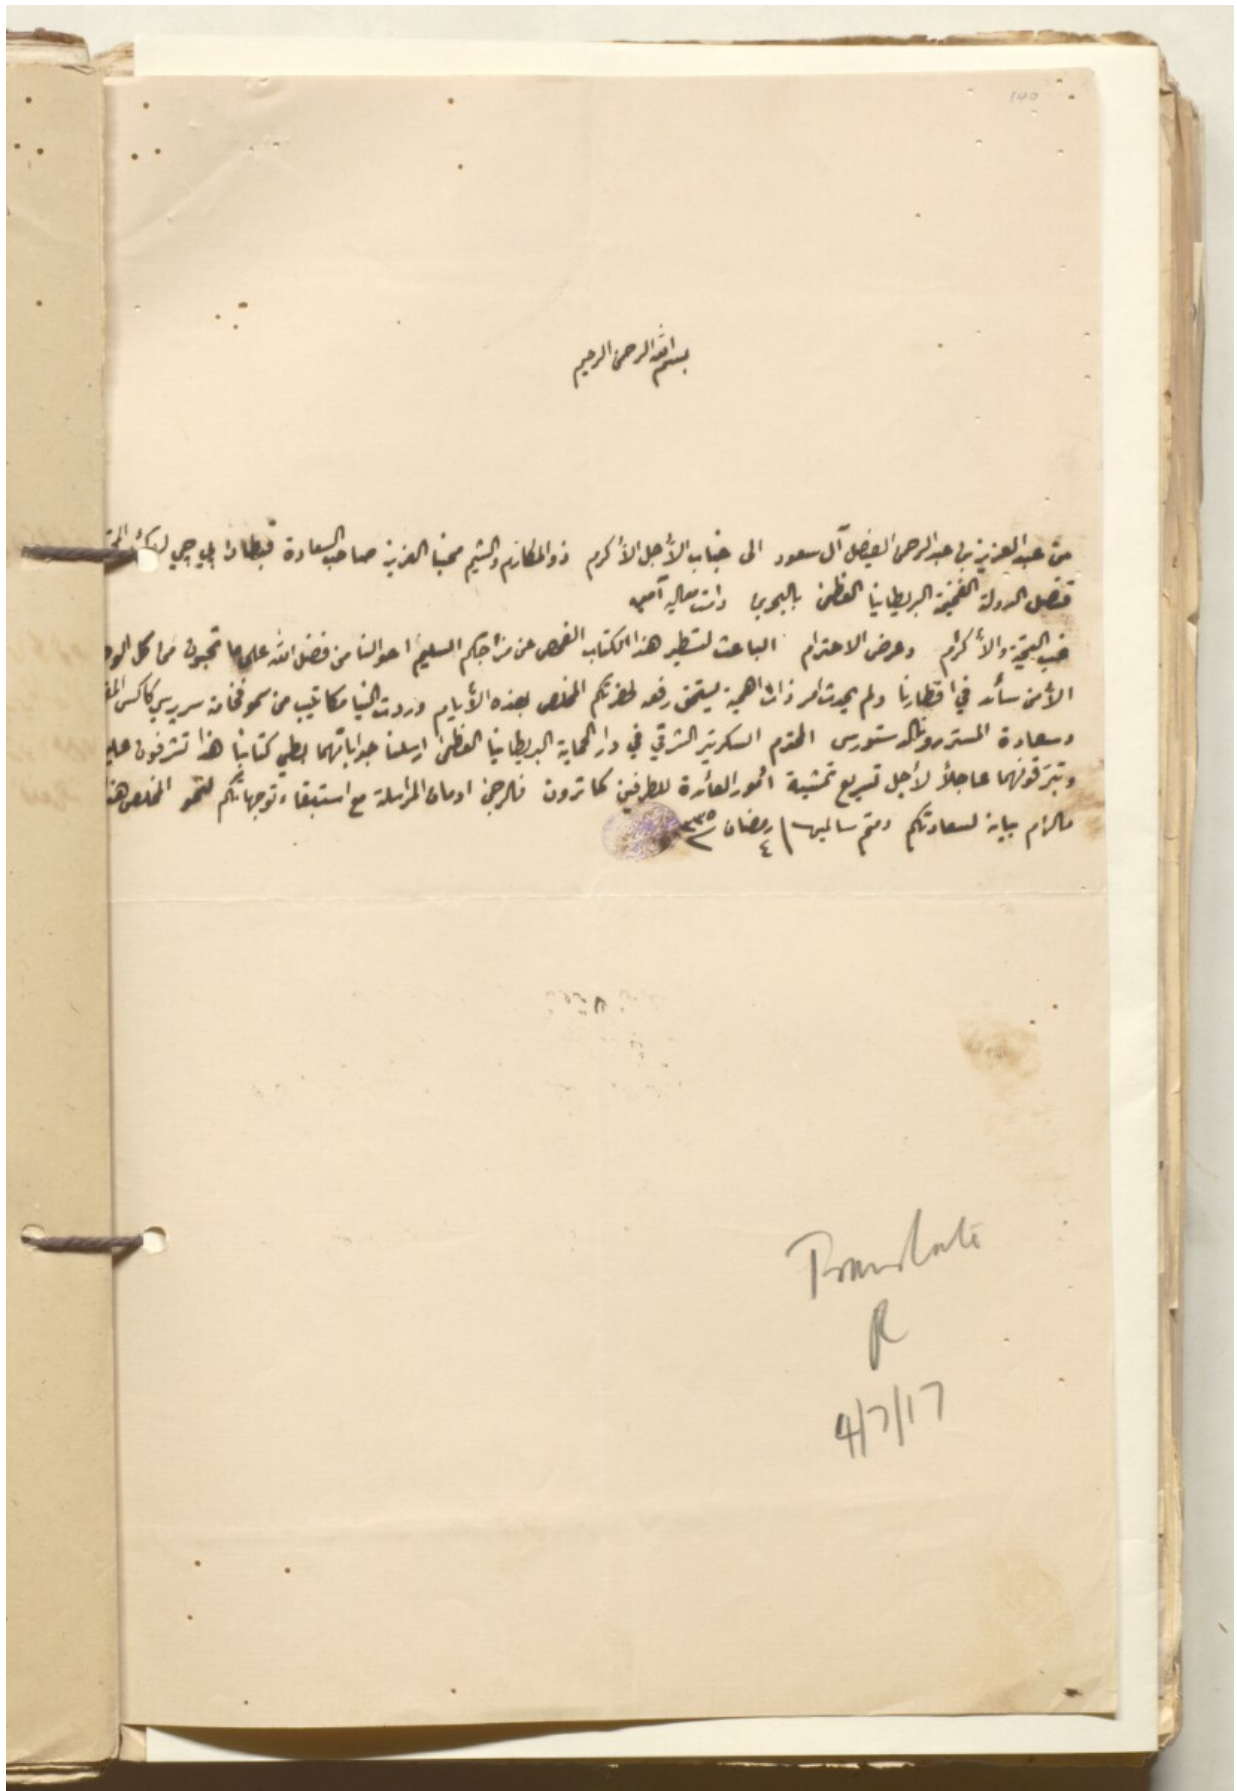 140
بسم الله الرحمن الرحيم
من عبد العزيز بن عبد الرحمن الفيصل آل سعود الى جناب الأجل الأكرم ذو المكارم والشيم محبنا العزيز صاحب السعادة قبطان بي جي
قنصل الدولة الفخيمة البريطانيا العظمى بالبحرين دامت معاليه آمين
غب التحية والأكرام وعرض الاحترام الباعث لتسطير هذا الكتاب الفحص عن مزاجكم السليم احوالنا من فضل الله على ما تحبون من كل
الأمن سائد في اقطارنا ولم يحدث امر ذات اهمية يستحق رفعه لحضرتكم المخلص بهذه الأيام وردت الينا مكاتيب من سمو فخامة سر برسي كاكس
وسعادة المستر رونالد ستورس المحترم السكرتير الشرقي في دار الحماية البريطانيا العظمى ارسلنا جواباتهما بطي كتابنا هذا تشرفون
عاجلاً لأجل تسريع تمشية أمور العائدة للطرفين كما ترون فالرجئ ادمان المراسلة مع استبقاء توجهاتكم لنحو المخلص هذا
مالزم بيانه لسعادتكم ودمتم سالمين ٤ رمضان ٣٣٥
Translate
R
4/7/17